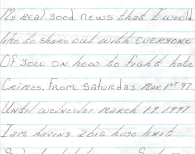 My real good news that I would
like to share out with EVERYONE
OF YOU ON how to fight hate
Crimes. From Saturday Mar 1st 97
Until Wednesday March 19 1997
I am having